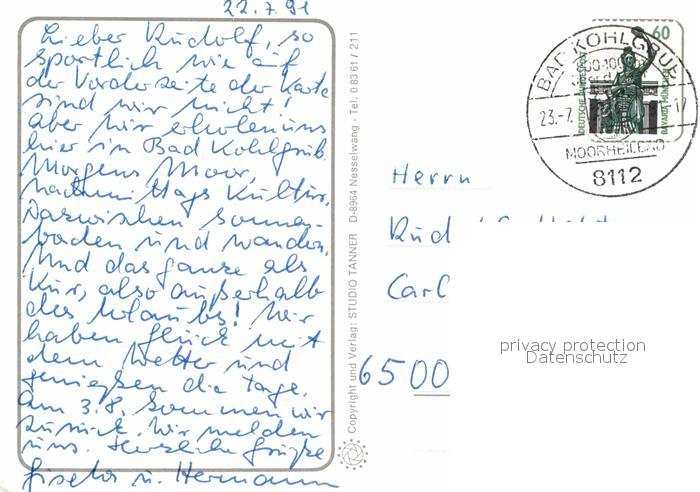 22.7.91
Lieber Rudolf, so
sportlich wie auf
der Vorderseite der Karte
sind wir nicht!
Aber wir erholen uns
hier in Bad Kohlgrub.
Morgens Moor,
nachmittags Kultur,
dazwischen Sonnen-
baden und wandern.
Und das ganze als
Kur, also außerhalb
des Urlaubs! Wir
haben Glück mit
dem Wetter und
genießen die Tage.
Am 3.8. kommen wir
zurück. Wir melden
uns. Herzliche Grüße
Gisela u. Hermann
Copyright und Verlag: STUDIO TANNER D-8964 Nesselwang · Tel. 0 83 61 / 211
60
DEUTSCHE BUNDESPOST
BAVARIA MÜNCHEN
BAD KOHLGRUB
23.-7. 17
MOORHEILBAD
8112
Herrn
Rud
Carl
6500
privacy protection
Datenschutz